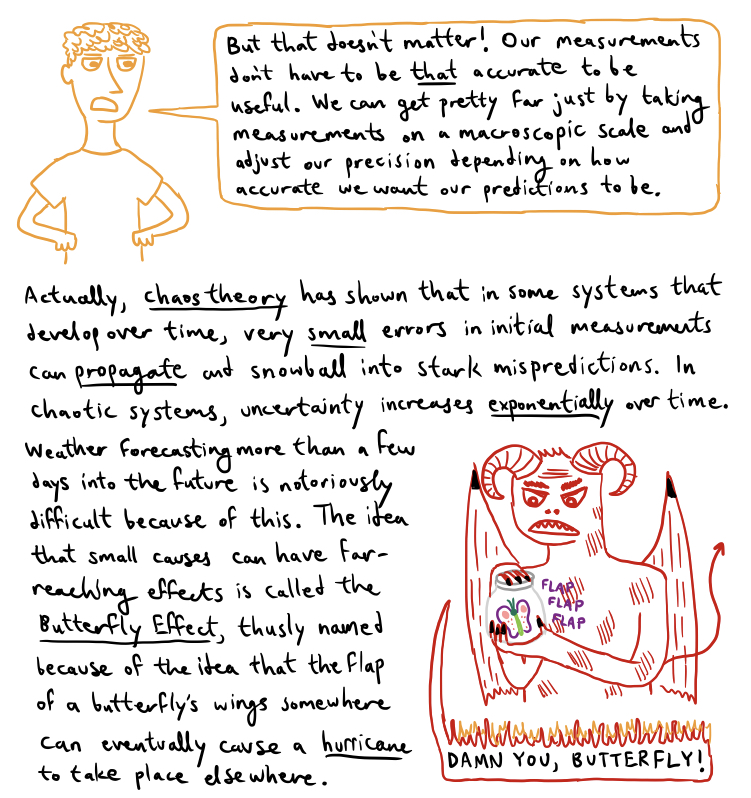 But that doesn't matter! Our measurements
don't have to be that accurate to be
useful. We can get pretty far just by taking
measurements on a macroscopic scale and
adjust our precision depending on how
accurate we want our predictions to be.
Actually, chaos theory has shown that in some systems that
develop over time, very small errors in initial measurements
can propagate and snowball into stark mispredictions. In
chaotic systems, uncertainty increases exponentially over time.
Weather forecasting more than a few
days into the future is notoriously
difficult because of this. The idea
that small causes can have far-
reaching effects is called the
Butterfly Effect, thusly named
because of the idea that the flap
of a butterfly's wings somewhere
can eventually cause a hurricane
to take place elsewhere.
FLAP
FLAP
FLAP
DAMN YOU, BUTTERFLY!